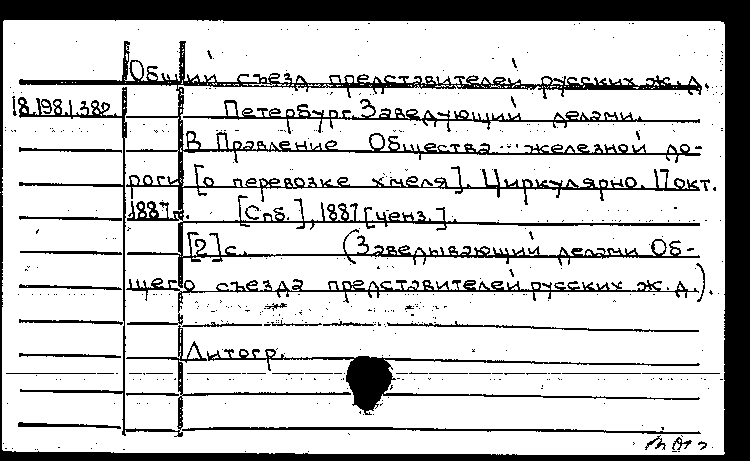 Общий съезд представителей русских ж.д.
18.198.1.382. Петербург. Заведующий делами.
В Правление Общества ... железной до-
роги [о перевозке хмеля]. Циркулярно. 17 окт.
1887 г. [Спб.], 1887 [ценз.].
[2] с. (Заведывающий делами Об-
щего съезда представителей русских ж.д.).
Литогр.